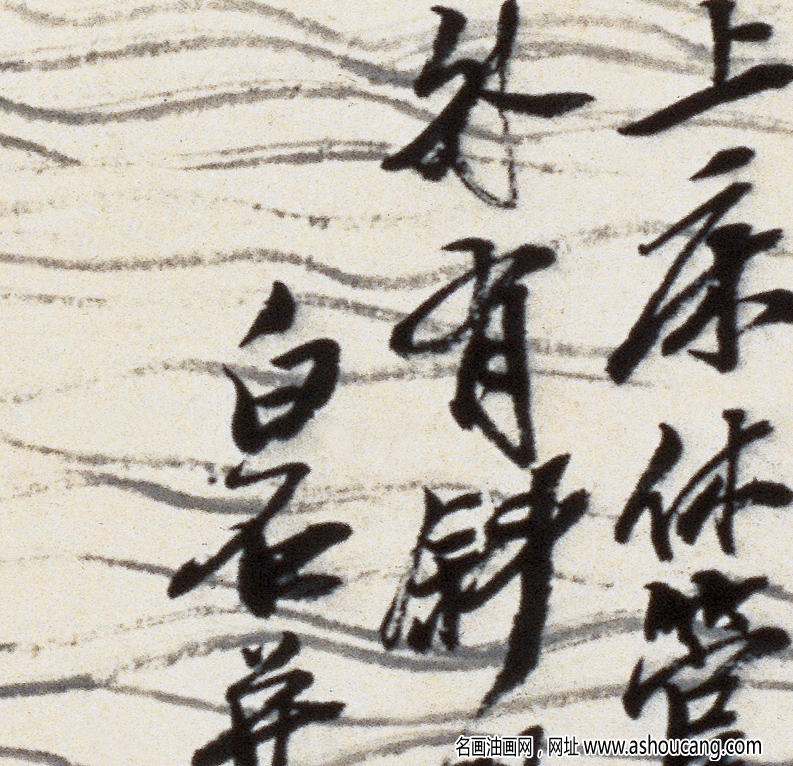 上床休管
外有斜
白石并
名画油画网，网址 www.ashoucang.com